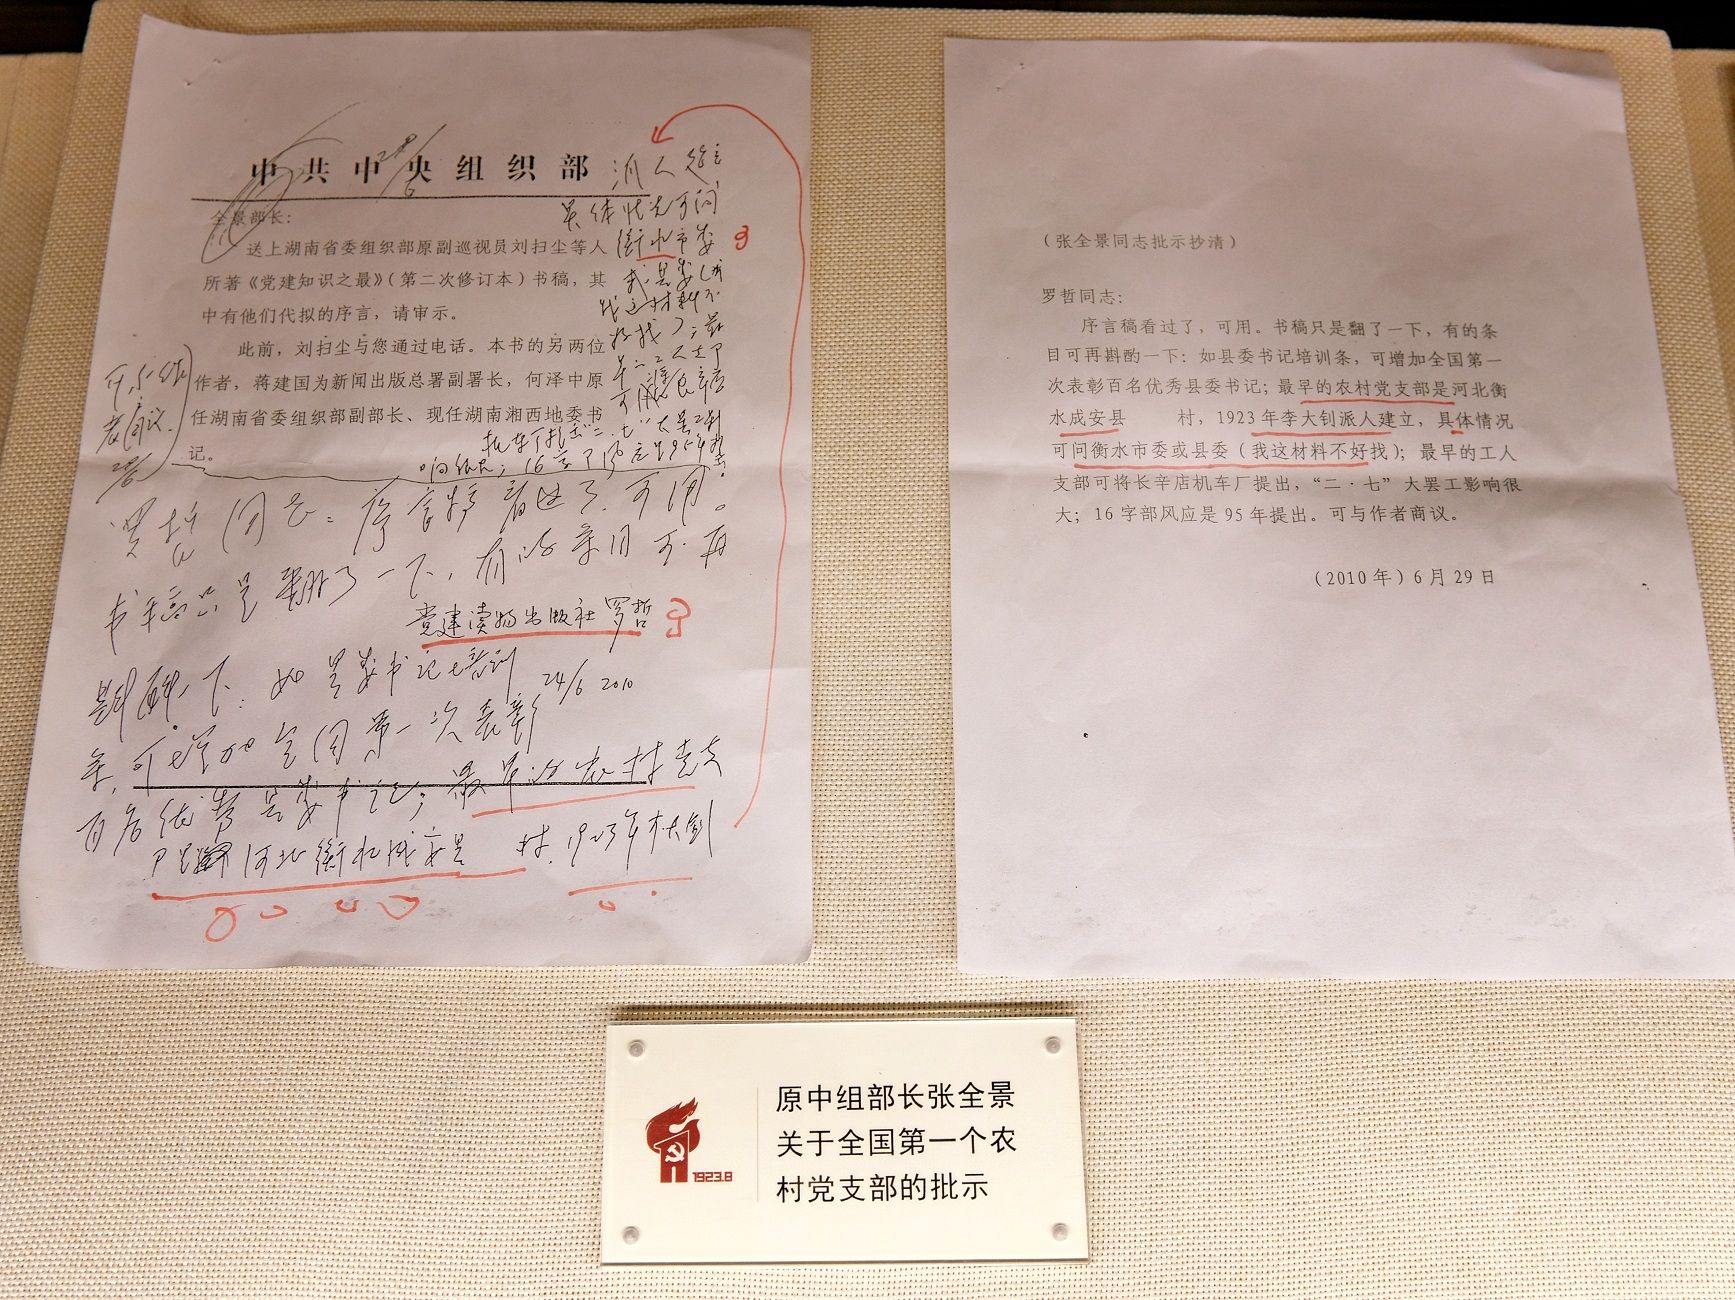 中共中央组织部
全景部长：
送上湖南省委组织部原副巡视员刘扫尘等人
所著《党建知识之最》（第二次修订本）书稿，其
中有他们代拟的序言，请审示。
此前，刘扫尘与您通过电话。本书的另两位
作者，蒋建国为新闻出版总署副署长，何泽中原
任湖南省委组织部副部长、现任湖南湘西地委书
记。
派人建立
具体情况可问
衡水市委
或县委（我
这材料不
好找）；最
罗哲同志：序言稿看过了，可用。
书稿只是翻了一下，有的条目可再
党建读物出版社 罗哲
24/6 2010
斟酌一下：如县委书记培训
条，可增加全国第一次表彰
百名优秀县委书记；最早的农村党支
河北衡水成安县 村，1923年李大钊
（张全景同志批示抄清）
罗哲同志：
序言稿看过了，可用。书稿只是翻了一下，有的条
目可再斟酌一下：如县委书记培训条，可增加全国第一
次表彰百名优秀县委书记；最早的农村党支部是河北衡
水成安县 村，1923年李大钊派人建立，具体情况
可问衡水市委或县委（我这材料不好找）；最早的工人
支部可将长辛店机车厂提出，“二·七”大罢工影响很
大；16字部风应是95年提出。可与作者商议。
（2010年）6月29日
1923.8
原中组部长张全景
关于全国第一个农
村党支部的批示